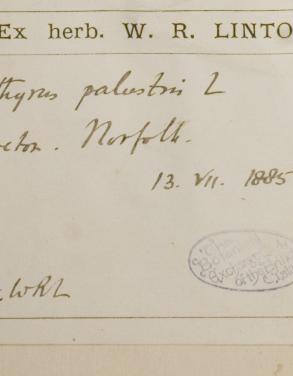 Ex herb. W. R. LINTO
thyrus palustris L
Norfolk.
13. VII. 1885
The
Botanical
Exchange
of the
WRL